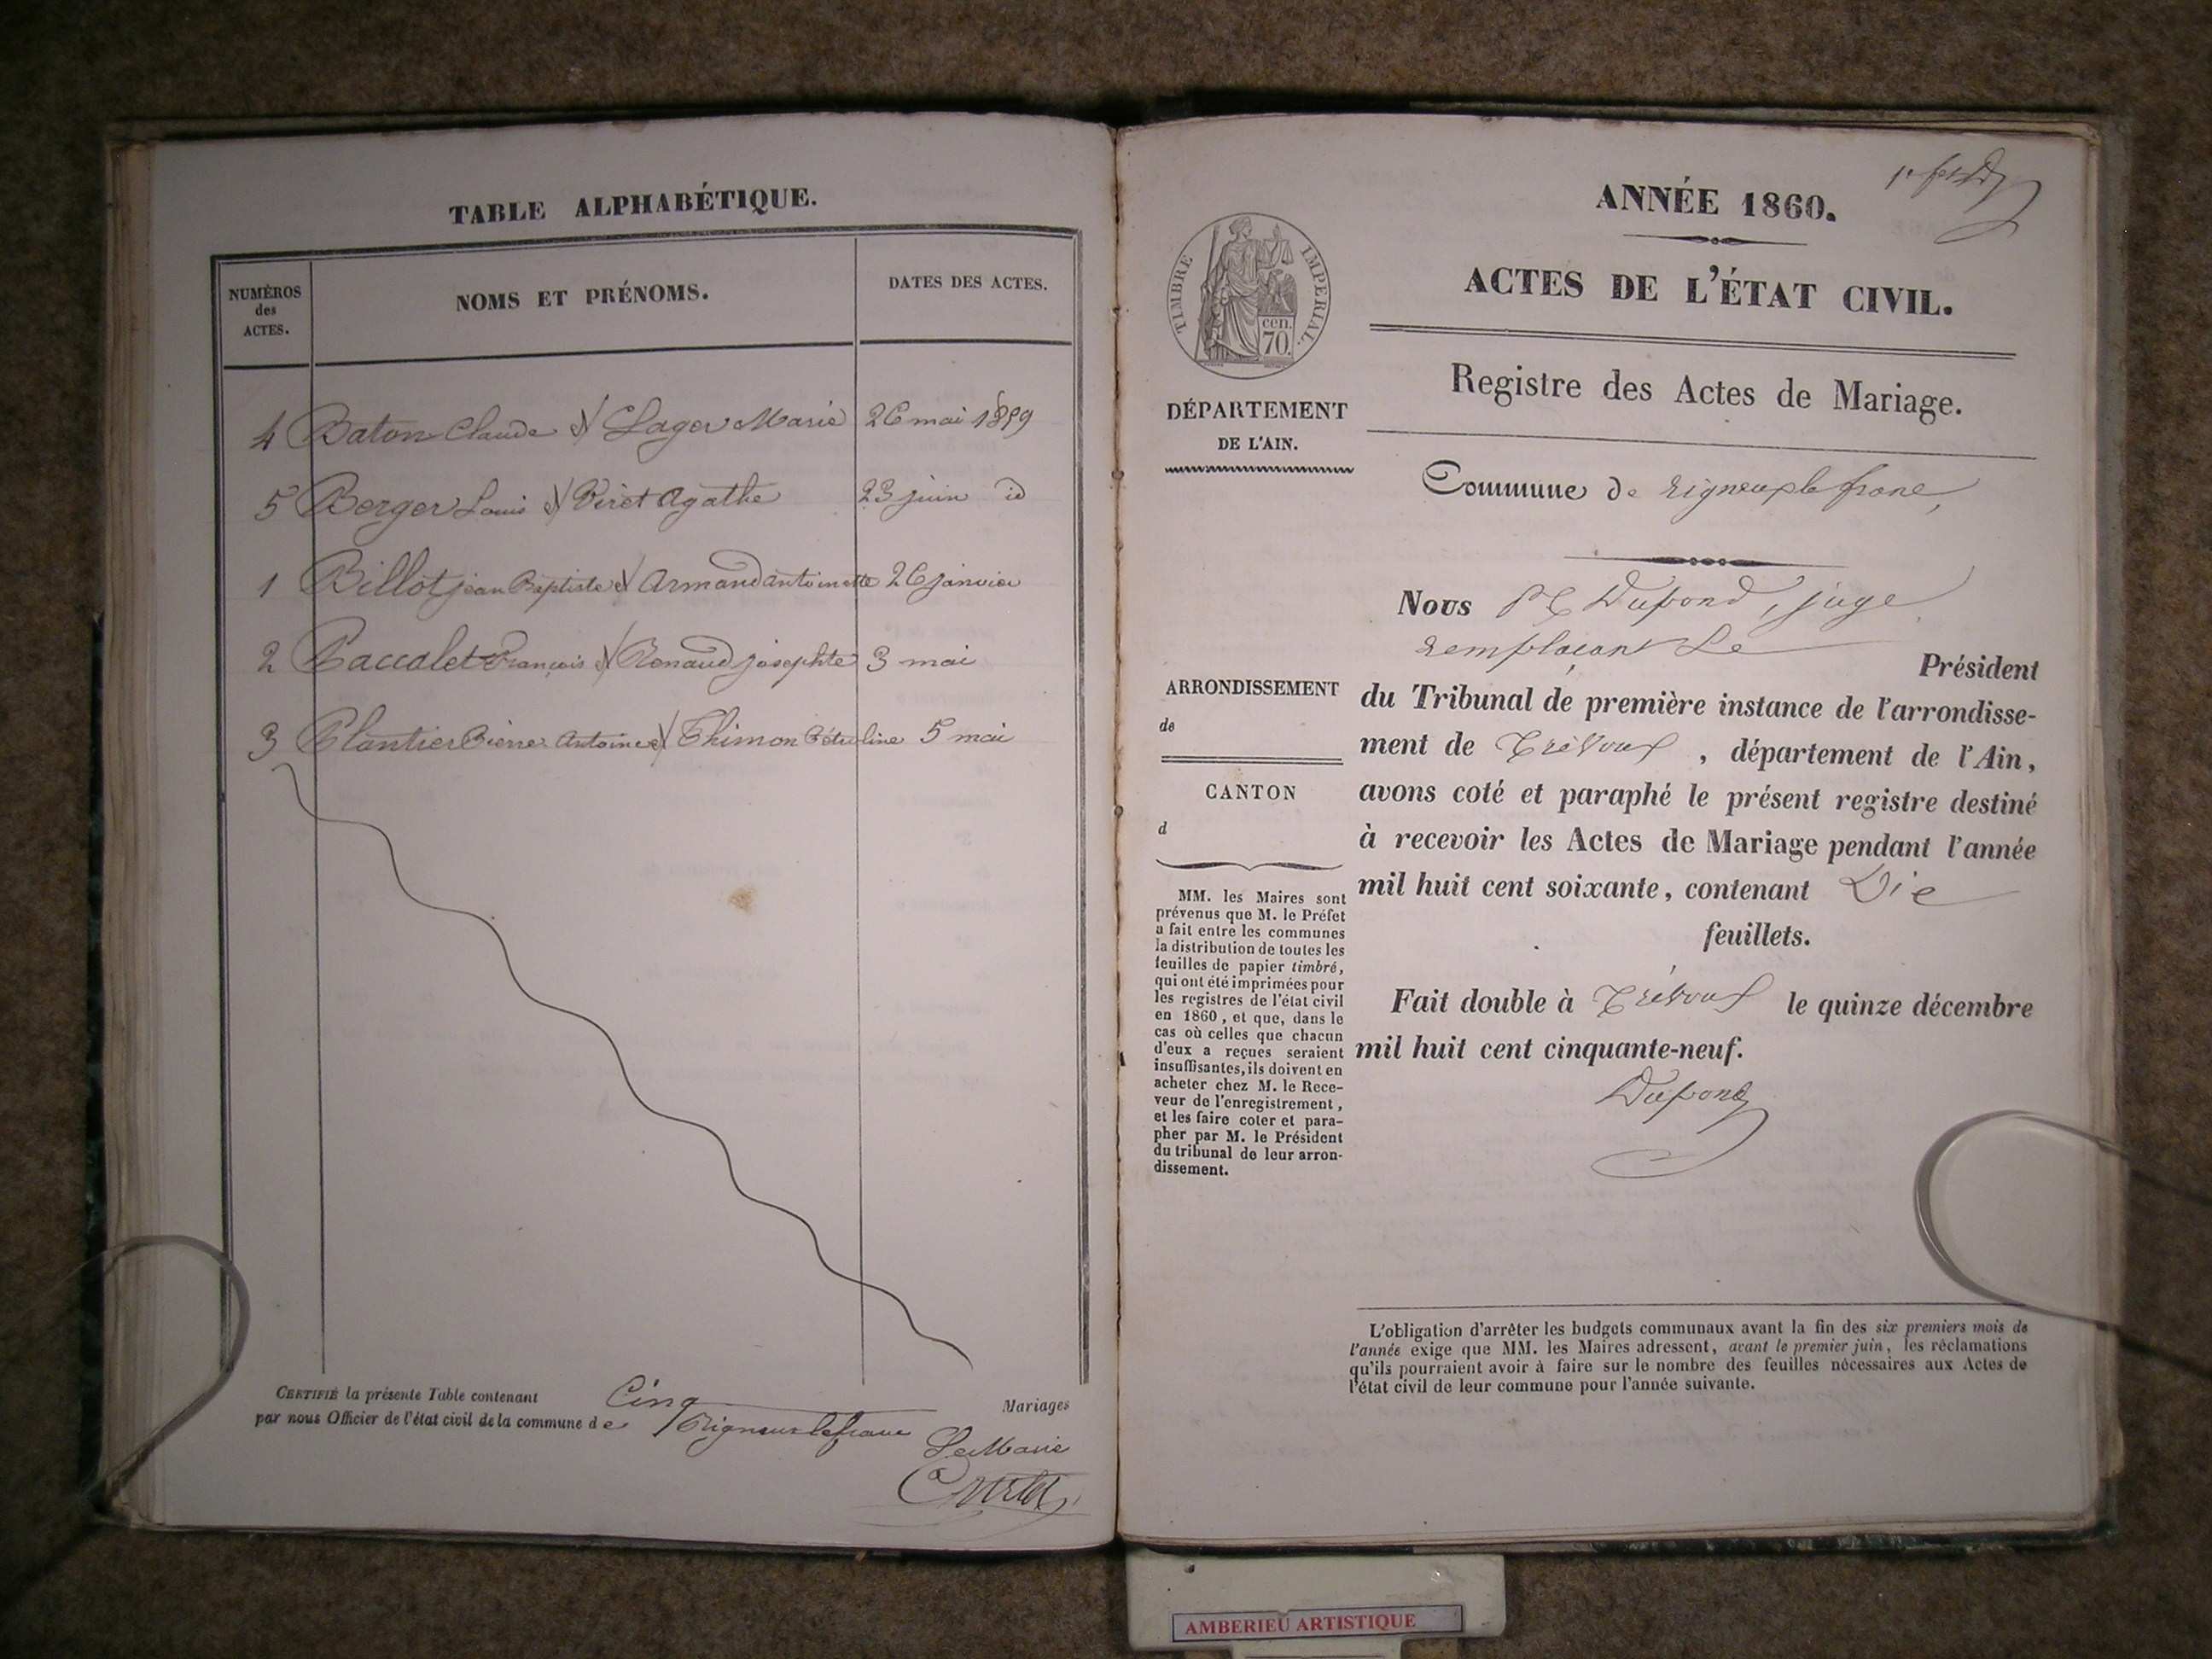 TABLE ALPHABÉTIQUE.
NUMÉROS
des
ACTES.
NOMS ET PRÉNOMS.
DATES DES ACTES.
4 Baton Claude et Lager Marie 26 mai 1859
5 Berger Louis et Viret Agathe 23 juin id
1 Billot jean Baptiste et Armand antoinette 26 janvier
2 Paccalet François et Renaud josephte 3 mai
3 Plantier Pierre Antoine et Thimon Pétroline 5 mai
CERTIFIÉ la présente Table contenant Cinq Mariages
par nous Officier de l'état civil de la commune de Rigneux le franc
Le Maire
1er
ANNÉE 1860.
ACTES DE L'ÉTAT CIVIL.
TIMBRE IMPÉRIAL.
cen.
70.
Registre des Actes de Mariage.
DÉPARTEMENT
DE L'AIN.
Commune de Rigneux le franc,
Nous Dupond, juge
remplaçant Le Président
ARRONDISSEMENT
de
CANTON
d
du Tribunal de première instance de l'arrondisse-
ment de Trévoux, département de l'Ain,
avons coté et paraphé le présent registre destiné
à recevoir les Actes de Mariage pendant l'année
mil huit cent soixante, contenant Dix
feuillets.
Fait double à Trévoux le quinze décembre
mil huit cent cinquante-neuf.
Dupond
MM. les Maires sont
prévenus que M. le Préfet
a fait entre les communes
la distribution de toutes les
feuilles de papier timbré,
qui ont été imprimées pour
les registres de l'état civil
en 1860, et que, dans le
cas où celles que chacun
d'eux a reçues seraient
insuffisantes, ils doivent en
acheter chez M. le Rece-
veur de l'enregistrement,
et les faire coter et para-
pher par M. le Président
du tribunal de leur arron-
dissement.
L'obligation d'arrêter les budgets communaux avant la fin des six premiers mois de
l'année exige que MM. les Maires adressent, avant le premier juin, les réclamations
qu'ils pourraient avoir à faire sur le nombre des feuilles nécessaires aux Actes de
l'état civil de leur commune pour l'année suivante.
AMBERIEU ARTISTIQUE